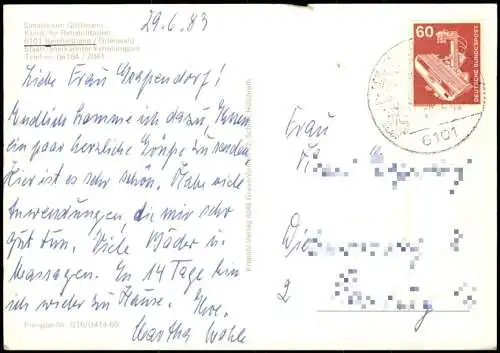 29.6.83
Sanatorium Göttmann
Klinik für Rehabilitation
6101 Reichelsheim / Odenwald
Staatl. anerkannter Erholungsort
Telefon: 06164 / 2041
Liebe Frau
Endlich komme ich dazu, Ihnen
ein paar herzliche Grüße zu senden.
Hier ist es sehr schön. Habe viele
Anwendungen, die mir sehr
gut tun. Viele Bäder u.
Massagen. In 14 Tage bin
ich wieder zu Hause. Ihre
Martha Wahle
Freigabe-Nr. G16/0414-60
60
DEUTSCHE BUNDESPOST
6101
Frau
2